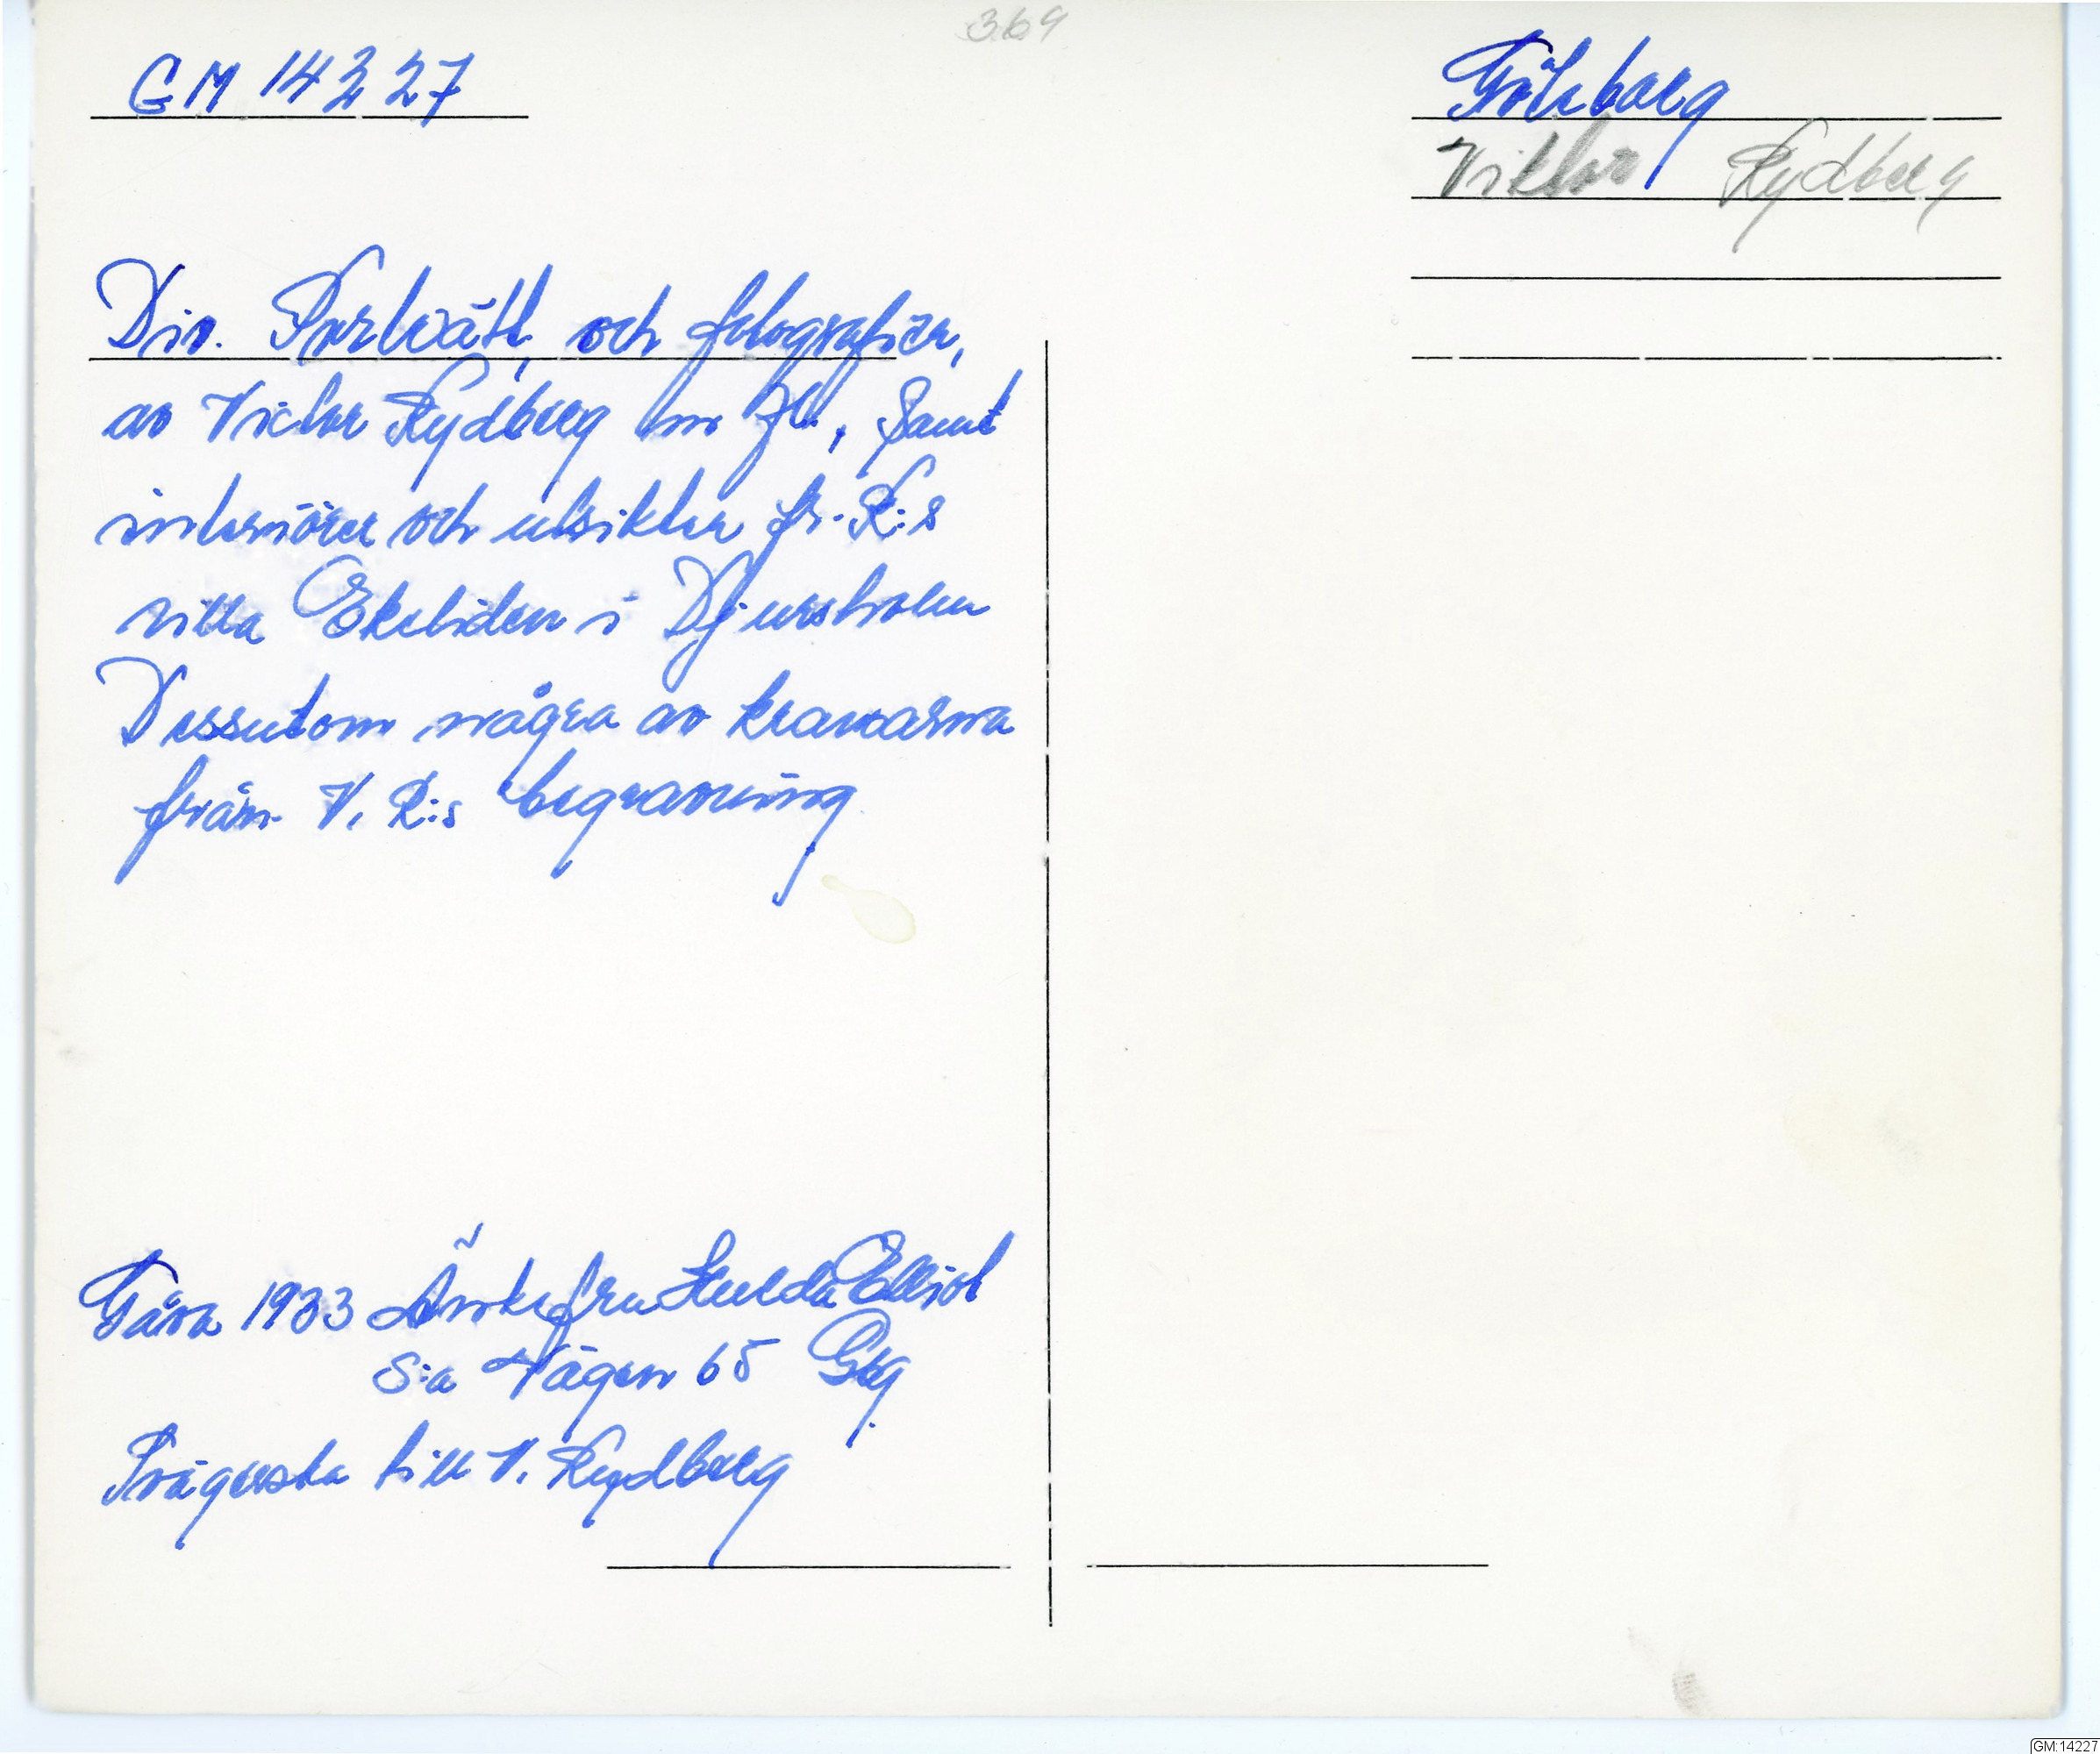 369
GM 14227
Göteborg
Viktor Rydberg
Div. Porträtt och fotografier,
av Victor Rydberg m fl., samt
interiörer och utsikter fr. R:s
villa Ekeliden i Djursholm
Dessutom några av kransarna
från V. R:s begravning
Gåva 1933 Änkefru Hulda Elliot
S:a Vägen 65 Gbg.
Svägerska till V. Rydberg
GM:14227